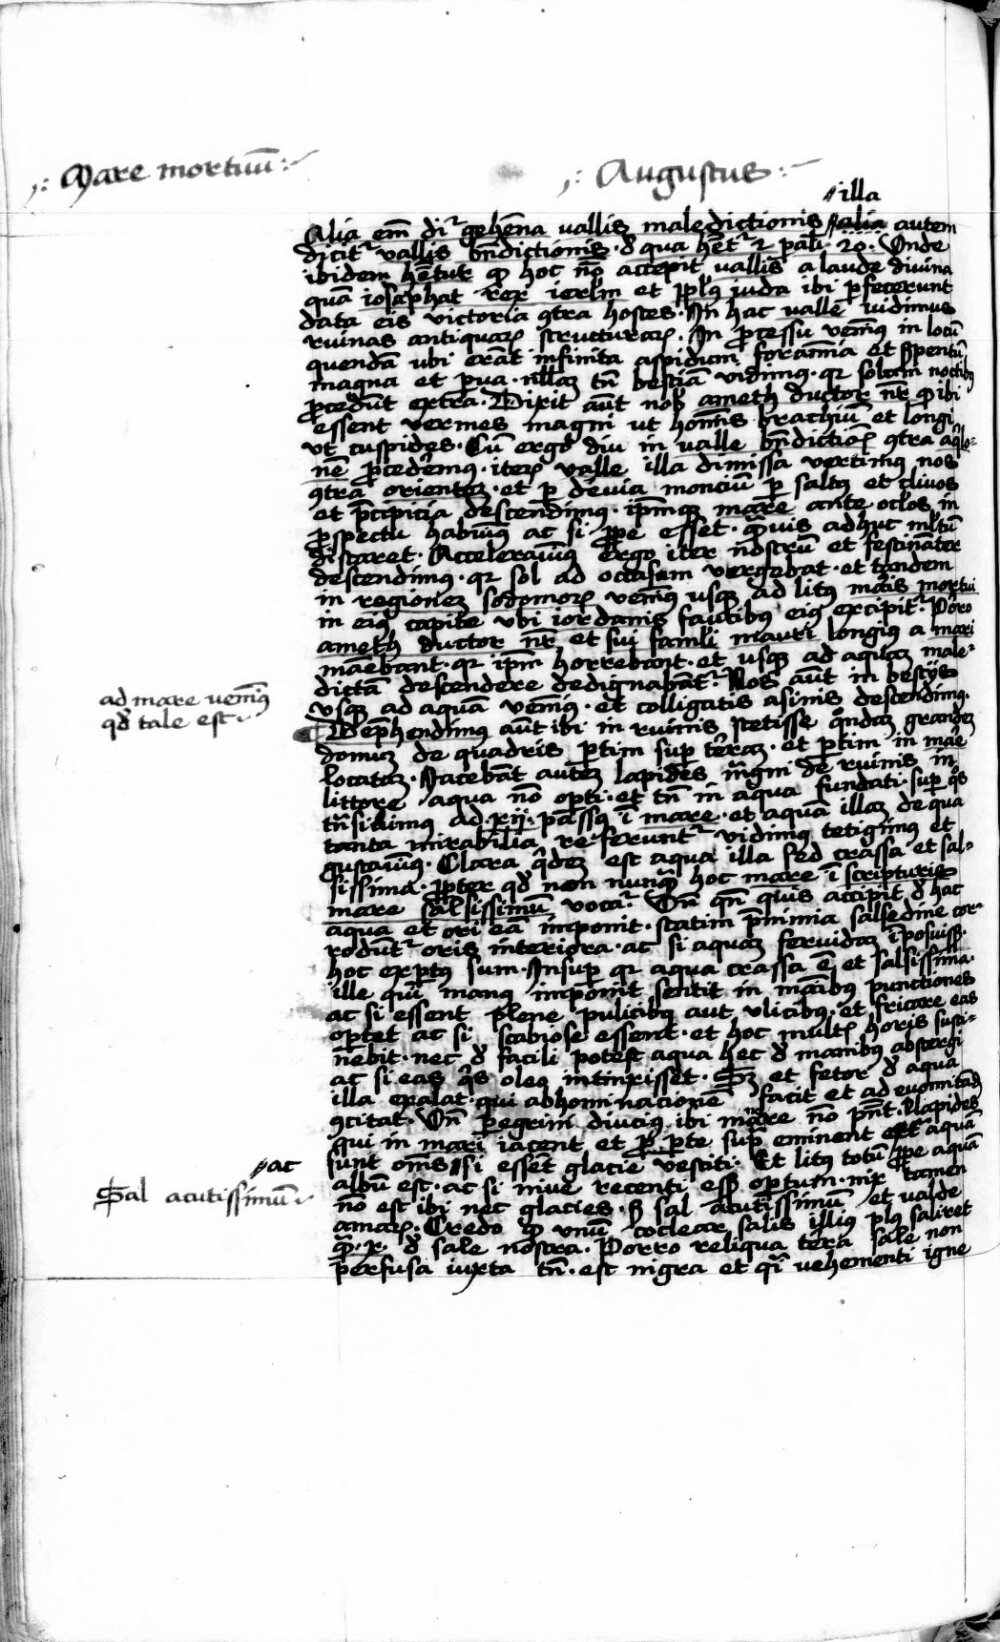 Mare mortuū
Augustus
illa
Alia em̄ dr̄ gehēna vallis maledictionis alia autem
dicit᷑ vallis bn̄dictionis · d̄ qua hēt᷑ 2 paral 20 · Unde
ibidem hētur qđ hoc nō accepit vallis a laude divina
quā iosaphat rex ierlm̄ et ppl̄s juda ibi ꝑfecerunt
data eis victoria ꝯtra hostes · In hac valle vidimus
ruinas antiquaꝝ structuraꝝ · In ꝓcessu venimꝰ in locū
quendā ubi erāt infinita aspidum foramīa et ẜpentū
magna et ꝑva · nullā tn̄ bestiā vidimꝰ · qꝛ solum noctibꝰ
ꝓcedūt extra · Dixit aūt nob̄ ameth ductor nr̄ qđ ibi
essent vermes magni ut hōinis brachiū et longi
ut cuspides · Cū ergo diu in valle bn̄dictiōꝝ ꝯtra aqlo-
nē ꝓcedemꝰ · iteꝝ valle illa dimissa vertimꝰ nos
ꝯtra orientem · et ꝑ devia monciū ꝑ saltꝰ et clivos
et p̄cipicia descendimꝰ · ipm̄qꝫ mare ante oclos in
ꝓspectu habuimꝰ ac si ꝓpe esset · qm̄vis adhuc ml̄tū
distaret · Acceleravimꝰ ergo iter nostrū et festināter
descendimꝰ · qꝛ sol ad occasam vergebat · et tandem
in regionem sodomoꝝ venimꝰ usqꝫ ad litꝰ maris mortui
in eiꝰ capite ubi iordanis faucibus eiꝰ excipit᷑ · Porro
ameth ductor nr̄ et sui famli mauri longius a mari
manebant · qꝛ ipm̄ horrebant · et usqꝫ ad aquam male-
dictā descendere dedignabāt᷑ · Nos aūt in bestijs
usqꝫ ad aquā venimꝰ · et colligatis asinis descendimꝰ ·
ad mare venimꝰ
qđ tale est
Dep̄hendimꝰ aūt ibi in ruinis stetisse qndam grandem
domum de quadris ꝑtim suꝑ terram · et ꝑtim in mare
locatam · Iacebāt autem lapides mgni de ruinis in
littore aqua nō opti · et tn̄ in aqua fundati · suꝑ qos
tn̄sivimus ad · xij · passus ī mare · et aquā illam de qua
tanta mirabilia referunt᷑ vidimꝰ tetigimꝰ et
gustavimꝰ · Clara qdem est aqua illa sed crassa et sal-
sissima · ꝓpter qđ non nunqꝫ hoc mare ī scripturis
mare salsissimū vocat᷑ · Un̄ qn̄ quis accipit d̄ hac
aqua et ori eā imponit · statim p̄nimia salsedine cor-
rodūt᷑ oris interiora · ac si aquam fervidam īposuissꝫ ·
hoc expertꝰ sum · Insuꝑ qꝛ aqua crassa ē et salsissima ·
ille qui manꝰ imponit sentit in manibꝰ punctiones
ac si essent plene pulicibus aut ulicibus · et fricare eas
oportet ac si scabiose essent · et hoc multis horis susti-
nebit · nec d̄ facili potest aqua hec d̄ manibꝰ abstergi
ac si eas qs oleo intinxisset · Sꝫ et fetor d̄ aqua
illa exalat · qui abhominacionē facit et ad evomitādū
ꝯcitat · Un̄ peregrini diuciꝰ ibi manere nō pn̄t · Lapides
qui in mari iacent et ꝓ ꝑte suꝑ eminent extra aquā
ac
sunt oms si essēt glacie vestiti · Et litꝰ totū ꝓpe aquā
Sal acutissimū
albū est · ac si nive recenti essꝫ optum · nix tamen
nō est ibi nec glacies · ẜ sal acutissimū et valde
amaꝝ · Credo qđ unū coclear salis illius plꝰ saliret
qm̄ · x · d̄ sale nostra · Porro reliqua tera sale non
perfusa iuxta tn̄ · est nigra et qsi vehementi igne